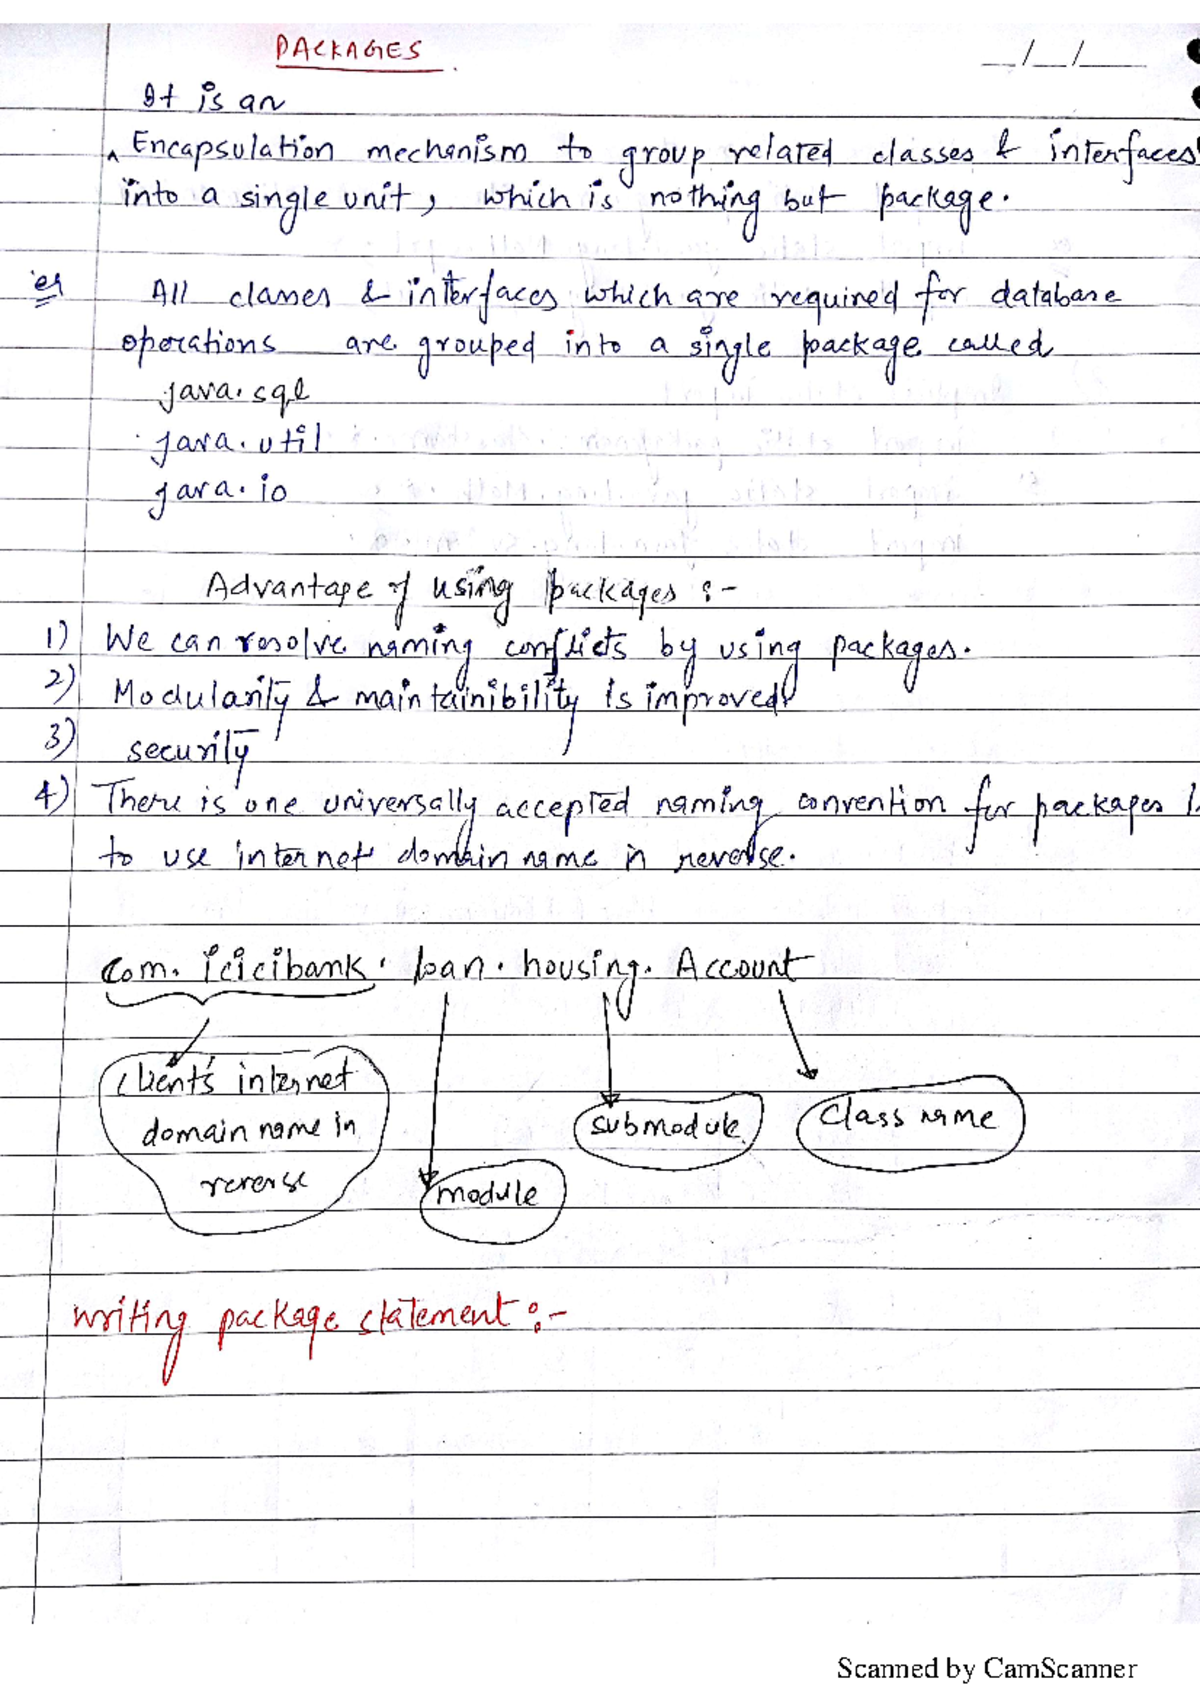 PACKAGES
_/_/_
It is an
^ Encapsulation mechanism to group related classes & interfaces
into a single unit, which is nothing but package.
ex All classes & interfaces which are required for database
operations are grouped into a single package called
java.sql
java.util
java.io
Advantage of using packages :-
1) We can resolve naming conflicts by using packages.
2) Modularity & maintainibility is improved
3) security
4) There is one universally accepted naming convention for packages
to use internet domain name in reverse.
com. icicibank. loan. housing. Account
client's internet
domain name in
reverse
module
submodule
class name
writing package statement :-
Scanned by CamScanner